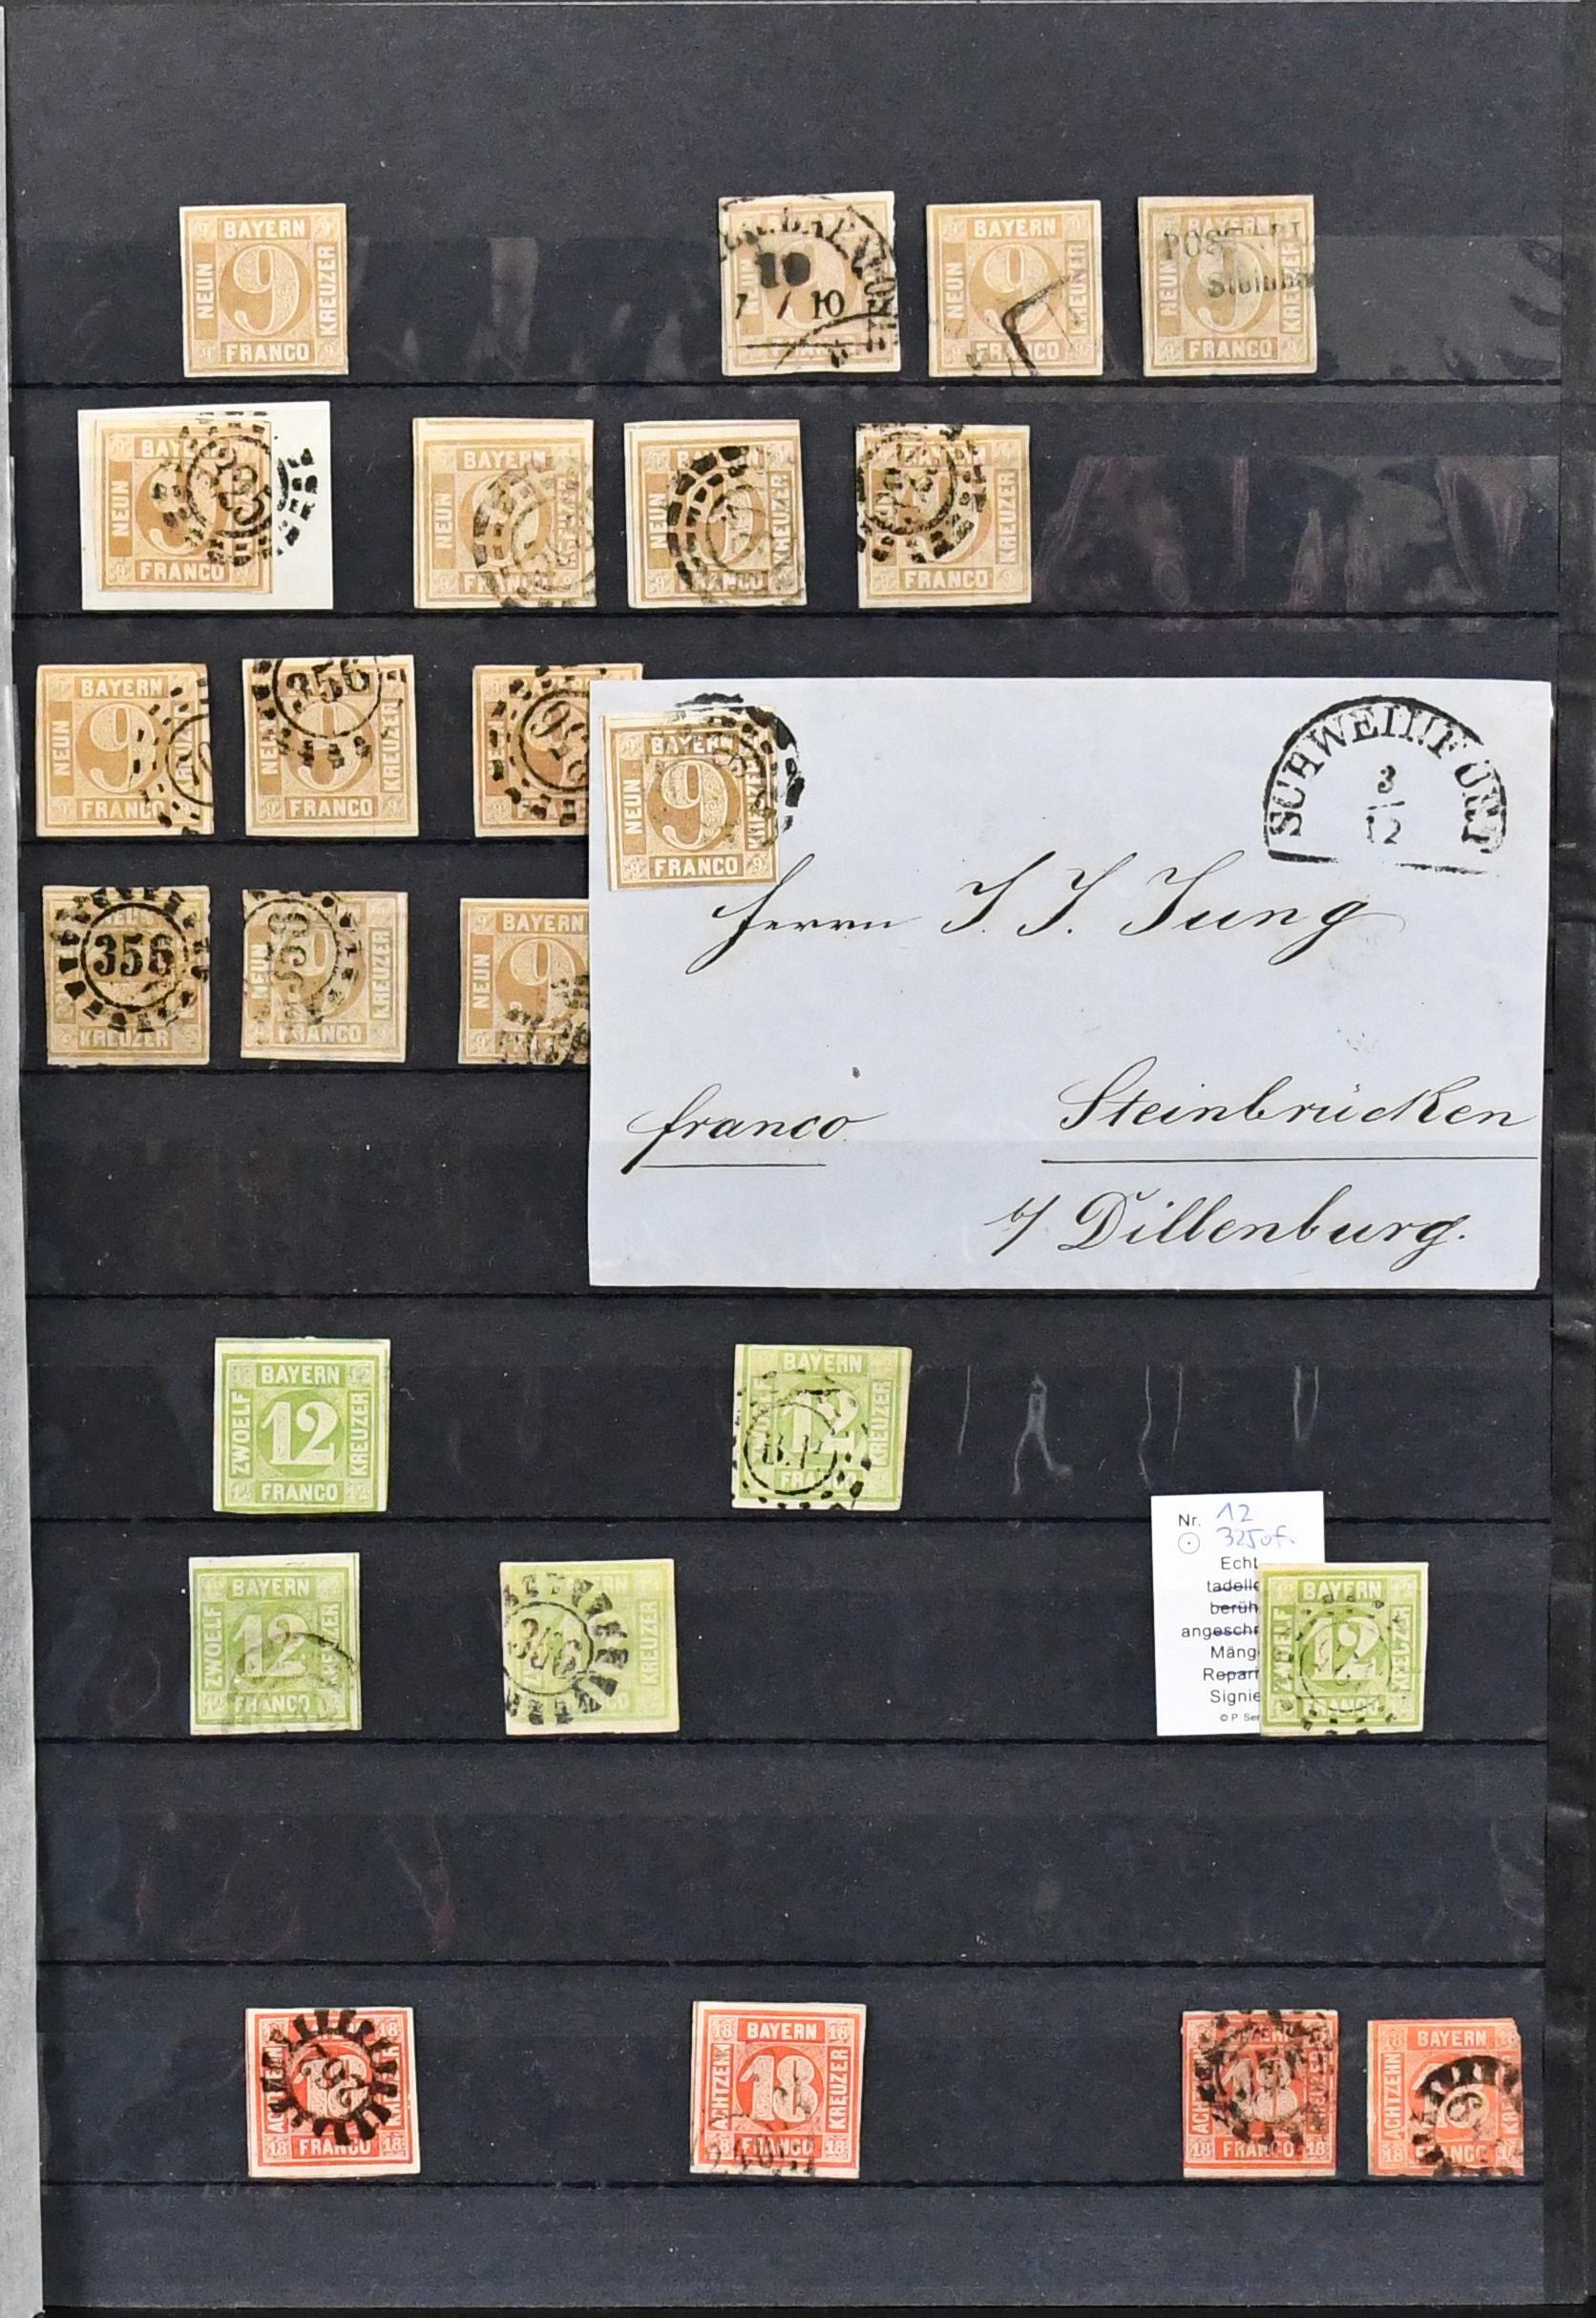 BAYERN
NEUN 9 KREUZER
FRANCO
10
7 / 10
BAYERN
NEUN 9 KREUZER
FRANCO
BAYERN
NEUN 9 KREUZER
FRANCO
NEUN
FRANCO
325
BAYERN
NEUN 9 KREUZER
BAYERN
NEUN KREUZER
FRANCO
KREUZER
FRANCO
BAYERN
NEUN 9
FRANCO
356
9 KREUZER
FRANCO
356
BAYERN
NEUN 9 KREUZER
FRANCO
SCHWEINFURT
3
12
Herrn J. J. Jung
franco
Steinbrücken
b/ Dillenburg.
356
KREUZER
356
NEUN 9 KREUZER
FRANCO
BAYERN
NEUN 9
12 BAYERN 12
ZWOELF 12 KREUZER
12 FRANCO 12
BAYERN
ZWOELF 12 KREUZER
FRANCO
BAYERN
ZWOELF 12 KREUZER
12 FRANCO
356
KREUZER
Nr. 12
325 of.
Echt
tadell
berüh
angeschn
Mäng
Repar
Signie
© P. Se
BAYERN
ZWOELF 12 KREUZER
FRANCO
18
ACHTZEHN
262
18 FRANCO 18
18 BAYERN 18
ACHTZEHN 18 KREUZER
FRANCO 18
18
18 FRANCO 18
BAYERN
ACHTZEHN
18 FRANCO 18